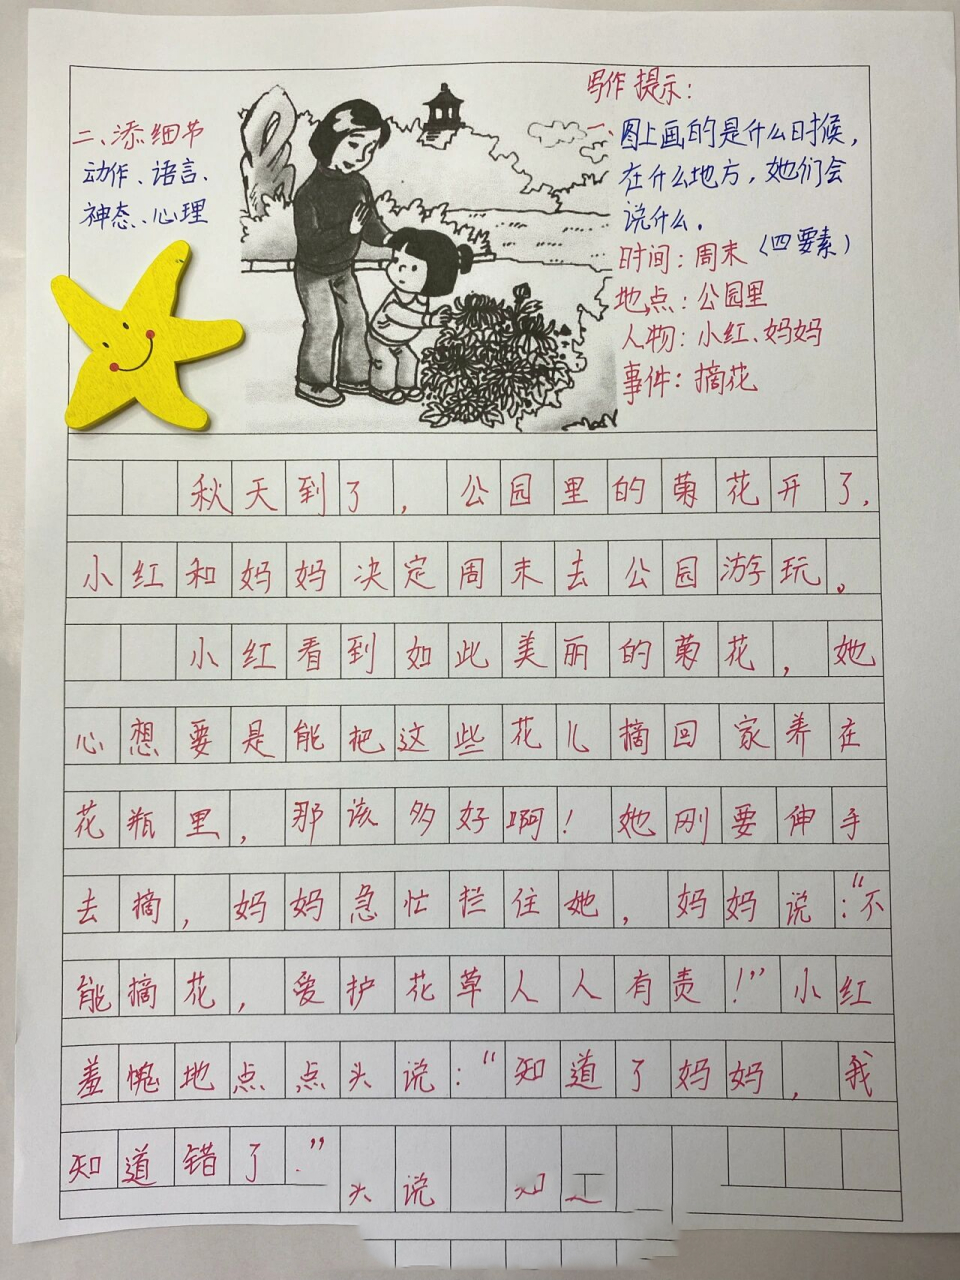 二、添细节
动作、语言、
神态、心理
写作提示：
一、图上画的是什么时候，
在什么地方，她们会
说什么.
（四要素）
时间：周末
地点：公园里
人物：小红、妈妈
事件：摘花
秋天到了，公园里的菊花开了，
小红和妈妈决定周末去公园游玩。
小红看到如此美丽的菊花，她
心想要是能把这些花儿摘回家养在
花瓶里，那该多好啊！她刚要伸手
去摘，妈妈急忙拦住她，妈妈说：“不
能摘花，爱护花草人人有责！”小红
羞愧地点点头说：“知道了妈妈，我
知道错了.”
头说